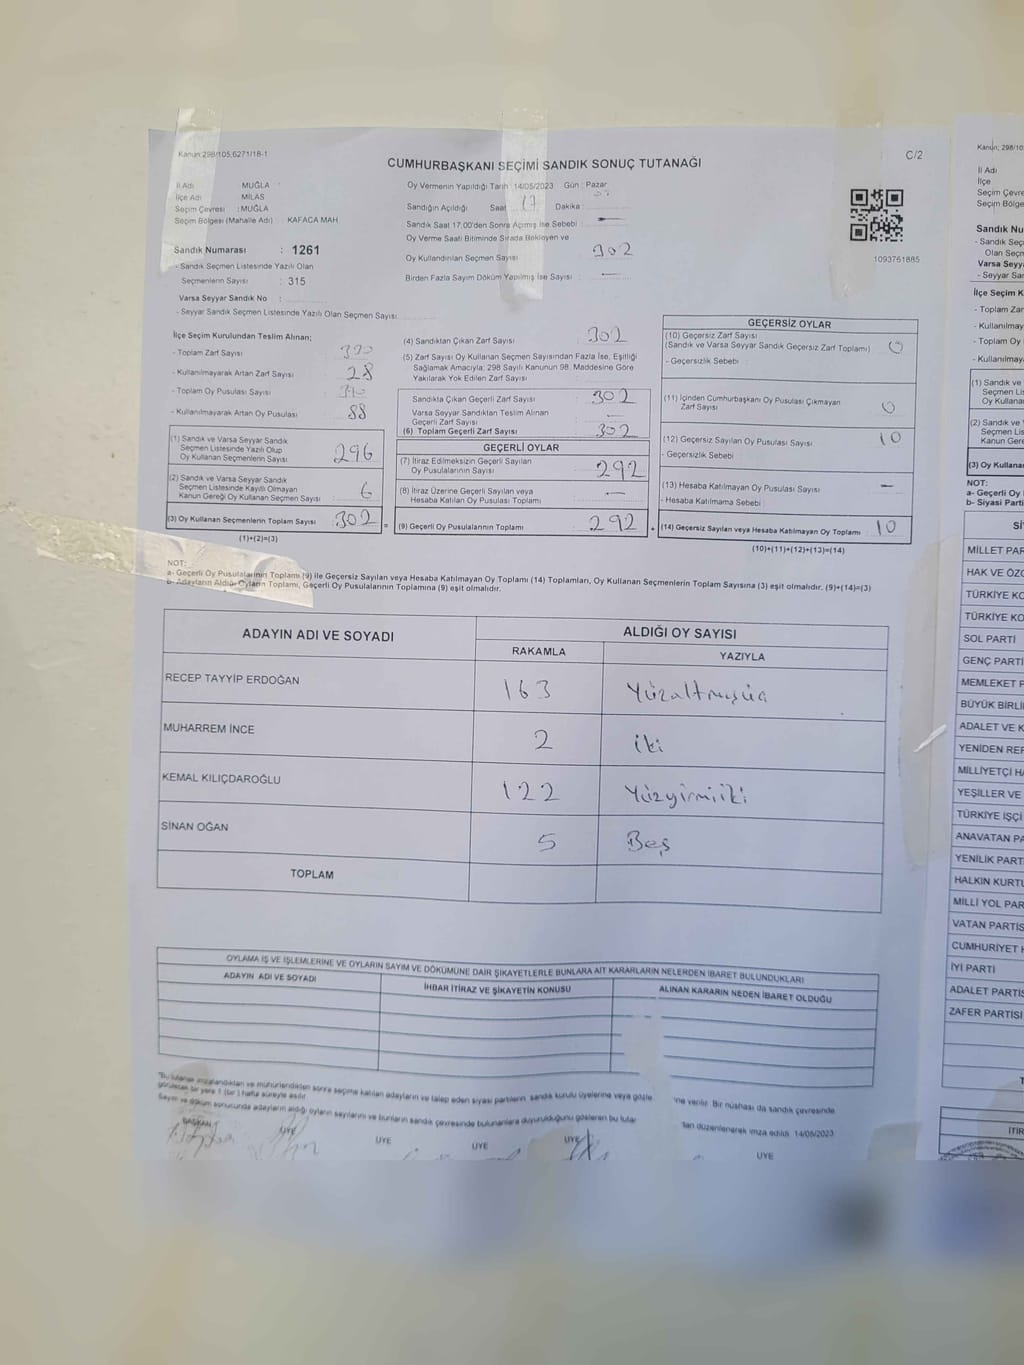 Kanun:298/105,6271/18-1
C/2
CUMHURBAŞKANI SEÇİMİ SANDIK SONUÇ TUTANAĞI
İl Adı : MUĞLA
İlçe Adı : MİLAS
Seçim Çevresi : MUĞLA
Seçim Bölgesi (Mahalle Adı) : KAFACA MAH
Sandık Numarası : 1261
- Sandık Seçmen Listesinde Yazılı Olan
Seçmenlerin Sayısı : 315
Varsa Seyyar Sandık No :
- Seyyar Sandık Seçmen Listesinde Yazılı Olan Seçmen Sayısı
Oy Vermenin Yapıldığı Tarih 14/05/2023 Gün : Pazar
Sandığın Açıldığı Saat 17 Dakika :
Sandık Saat 17:00'den Sonra Açılmış İse Sebebi : —
Oy Verme Saati Bitiminde Sırada Bekleyen ve
Oy Kullandırılan Seçmen Sayısı 302
Birden Fazla Sayım Döküm Yapılmış İse Sayısı : —
1093761885
İlçe Seçim Kurulundan Teslim Alınan;
- Toplam Zarf Sayısı
- Kullanılmayarak Artan Zarf Sayısı 28
- Toplam Oy Pusulası Sayısı
- Kullanılmayarak Artan Oy Pusulası 88
(1) Sandık ve Varsa Seyyar Sandık
Seçmen Listesinde Yazılı Olup
Oy Kullanan Seçmenlerin Sayısı 296
(2) Sandık ve Varsa Seyyar Sandık
Seçmen Listesinde Kayıtlı Olmayan
Kanun Gereği Oy Kullanan Seçmen Sayısı 6
(3) Oy Kullanan Seçmenlerin Toplam Sayısı 302 =
(1)+(2)=(3)
(4) Sandıktan Çıkan Zarf Sayısı : 302
(5) Zarf Sayısı Oy Kullanan Seçmen Sayısından Fazla İse, Eşitliği
Sağlamak Amacıyla; 298 Sayılı Kanunun 98. Maddesine Göre
Yakılarak Yok Edilen Zarf Sayısı :
Sandıkta Çıkan Geçerli Zarf Sayısı : 302
Varsa Seyyar Sandıktan Teslim Alınan
Geçerli Zarf Sayısı : —
(6) Toplam Geçerli Zarf Sayısı : 302
GEÇERLİ OYLAR
(7) İtiraz Edilmeksizin Geçerli Sayılan
Oy Pusulalarının Sayısı : 292
(8) İtiraz Üzerine Geçerli Sayılan veya
Hesaba Katılan Oy Pusulası Toplamı : —
(9) Geçerli Oy Pusulalarının Toplamı : 292 +
GEÇERSİZ OYLAR
(10) Geçersiz Zarf Sayısı
(Sandık ve Varsa Seyyar Sandık Geçersiz Zarf Toplamı) : 0
- Geçersizlik Sebebi :
(11) İçinden Cumhurbaşkanı Oy Pusulası Çıkmayan
Zarf Sayısı : 0
(12) Geçersiz Sayılan Oy Pusulası Sayısı : 10
- Geçersizlik Sebebi :
(13) Hesaba Katılmayan Oy Pusulası Sayısı : —
- Hesaba Katılmama Sebebi :
(14) Geçersiz Sayılan veya Hesaba Katılmayan Oy Toplamı : 10
(10)+(11)+(12)+(13)=(14)
NOT:
a- Geçerli Oy Pusulalarının Toplamı (9) ile Geçersiz Sayılan veya Hesaba Katılmayan Oy Toplamı (14) Toplamları, Oy Kullanan Seçmenlerin Toplam Sayısına (3) eşit olmalıdır. (9)+(14)=(3)
b- Adayların Aldığı Oyların Toplamı, Geçerli Oy Pusulalarının Toplamına (9) eşit olmalıdır.
ADAYIN ADI VE SOYADI
ALDIĞI OY SAYISI
RAKAMLA YAZIYLA
RECEP TAYYİP ERDOĞAN 163 Yüzaltmışüç
MUHARREM İNCE 2 iki
KEMAL KILIÇDAROĞLU 122 Yüzyirmiiki
SİNAN OĞAN 5 Beş
TOPLAM
OYLAMA İŞ VE İŞLEMLERİNE VE OYLARIN SAYIM VE DÖKÜMÜNE DAİR ŞİKAYETLERLE BUNLARA AİT KARARLARIN NELERDEN İBARET BULUNDUKLARI
ADAYIN ADI VE SOYADI İHBAR İTİRAZ VE ŞİKAYETİN KONUSU ALINAN KARARIN NEDEN İBARET OLDUĞU
*Bu tutanak imzalandıktan ve mühürlendikten sonra seçime katılan adayların ve talep eden siyasi partilerin sandık kurulu üyelerine veya gözle verilir. Bir nüshası da sandık çevresinde
görülecek bir yere 1 (bir) hafta süreyle asılır.
Sayım ve döküm sonucunda adayların aldığı oyların sayılarını ve bunların sandık çevresinde bulunanlara duyurulduğunu gösteren bu tutar düzenlenerek imza edildi. 14/05/2023
BAŞKAN ÜYE ÜYE ÜYE ÜYE ÜYE
Kanun; 298/10
İl Adı
İlçe
Seçim Çevre
Seçim Bölge
Sandık Nu
- Sandık Seç
Olan Seçm
Varsa Seyy
- Seyyar San
İlçe Seçim K
- Toplam Zar
- Kullanılmay
- Toplam Oy
- Kullanılmay
(1) Sandık ve
Seçmen Lis
Oy Kullana
(2) Sandık ve
Seçmen Lis
Kanun Gere
(3) Oy Kullana
NOT:
a- Geçerli Oy
b- Siyasi Parti
Sİ
MİLLET PAR
HAK VE ÖZG
TÜRKİYE KO
TÜRKİYE KO
SOL PARTİ
GENÇ PARTİ
MEMLEKET P
BÜYÜK BİRLİ
ADALET VE K
YENİDEN REF
MİLLİYETÇİ HA
YEŞİLLER VE
TÜRKİYE İŞÇİ
ANAVATAN PA
YENİLİK PARTİ
HALKIN KURTU
MİLLİ YOL PAR
VATAN PARTİS
CUMHURİYET H
İYİ PARTİ
ADALET PARTİS
ZAFER PARTİSİ
T
İTİR